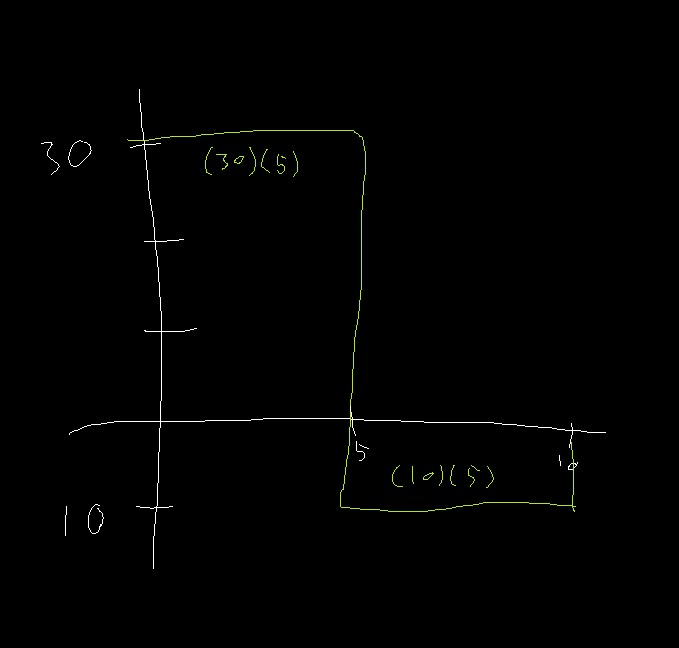 30
(30)(5)
5
10
(10)(5)
10